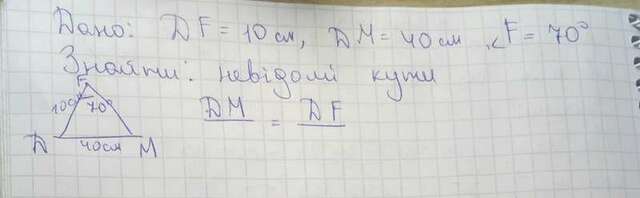 Дано: DF = 10 см, DM = 40 см, ∠F = 70°
Знайти: невідомі кути
F
10см
70°
D
40см
M
DM = DF